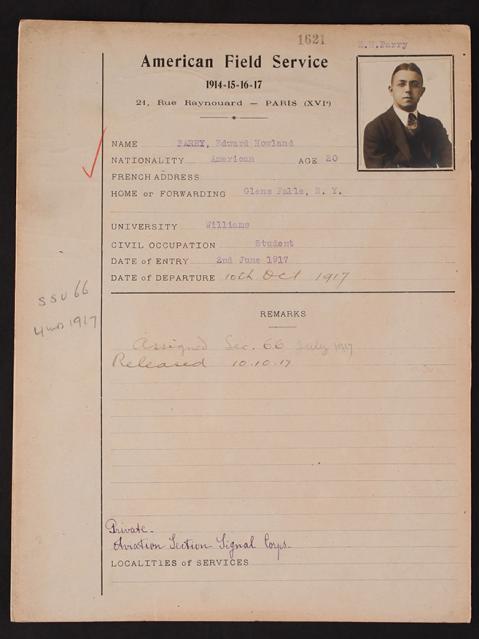 1621
E.H.Parry
American Field Service
1914-15-16-17
21, Rue Raynouard — PARIS (XVIe)
NAME PARRY, Edward Howland
NATIONALITY American AGE 20
FRENCH ADDRESS
HOME or FORWARDING Glens Falls, N. Y.
UNIVERSITY Williams
CIVIL OCCUPATION Student
DATE of ENTRY 2nd June 1917
DATE of DEPARTURE 10th Oct 1917
SSU 66
4 mos 1917
REMARKS
Assigned Sec. 66 July 1917
Released 10.10.17
Private.
Aviation Section Signal Corps.
LOCALITIES of SERVICES